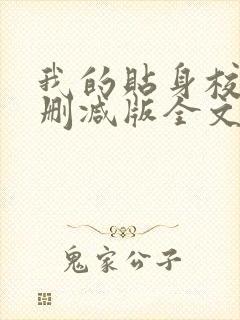 我的贴身校
删减版全文
鬼家公子